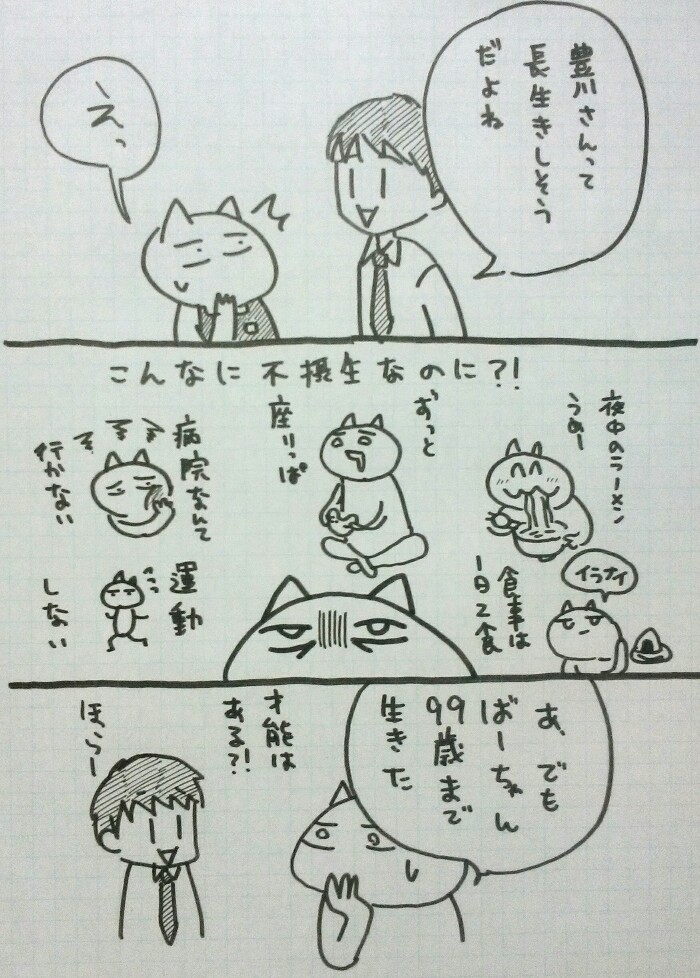 豊川さんって
長生きしそう
だよね
えっ
こんなに不摂生なのに?!
夜中のラーメン
うめー
ずっと
座りっぱ
病院なんて
行かない
イラナイ
食事は
1日2食
運動
しない
あ、でも
ばーちゃん
99歳まで
生きた
才能は
ある?!
ほらー